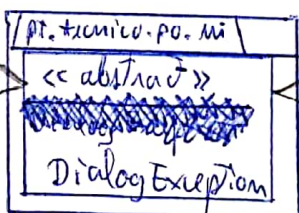 pt.tecnico.po.ui
<< abstract >>
DialogException